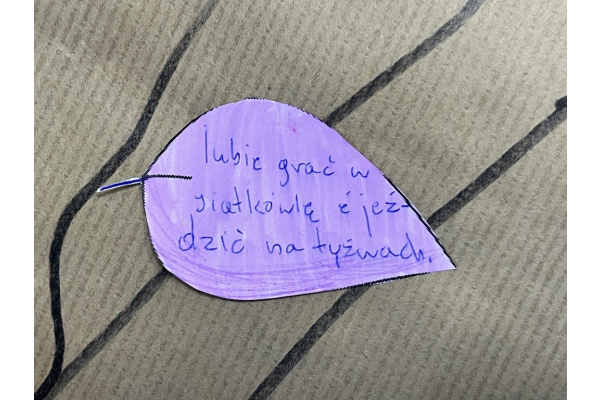 lubię grać w
siatkówlę i jeź-
dzić na łyżwach.